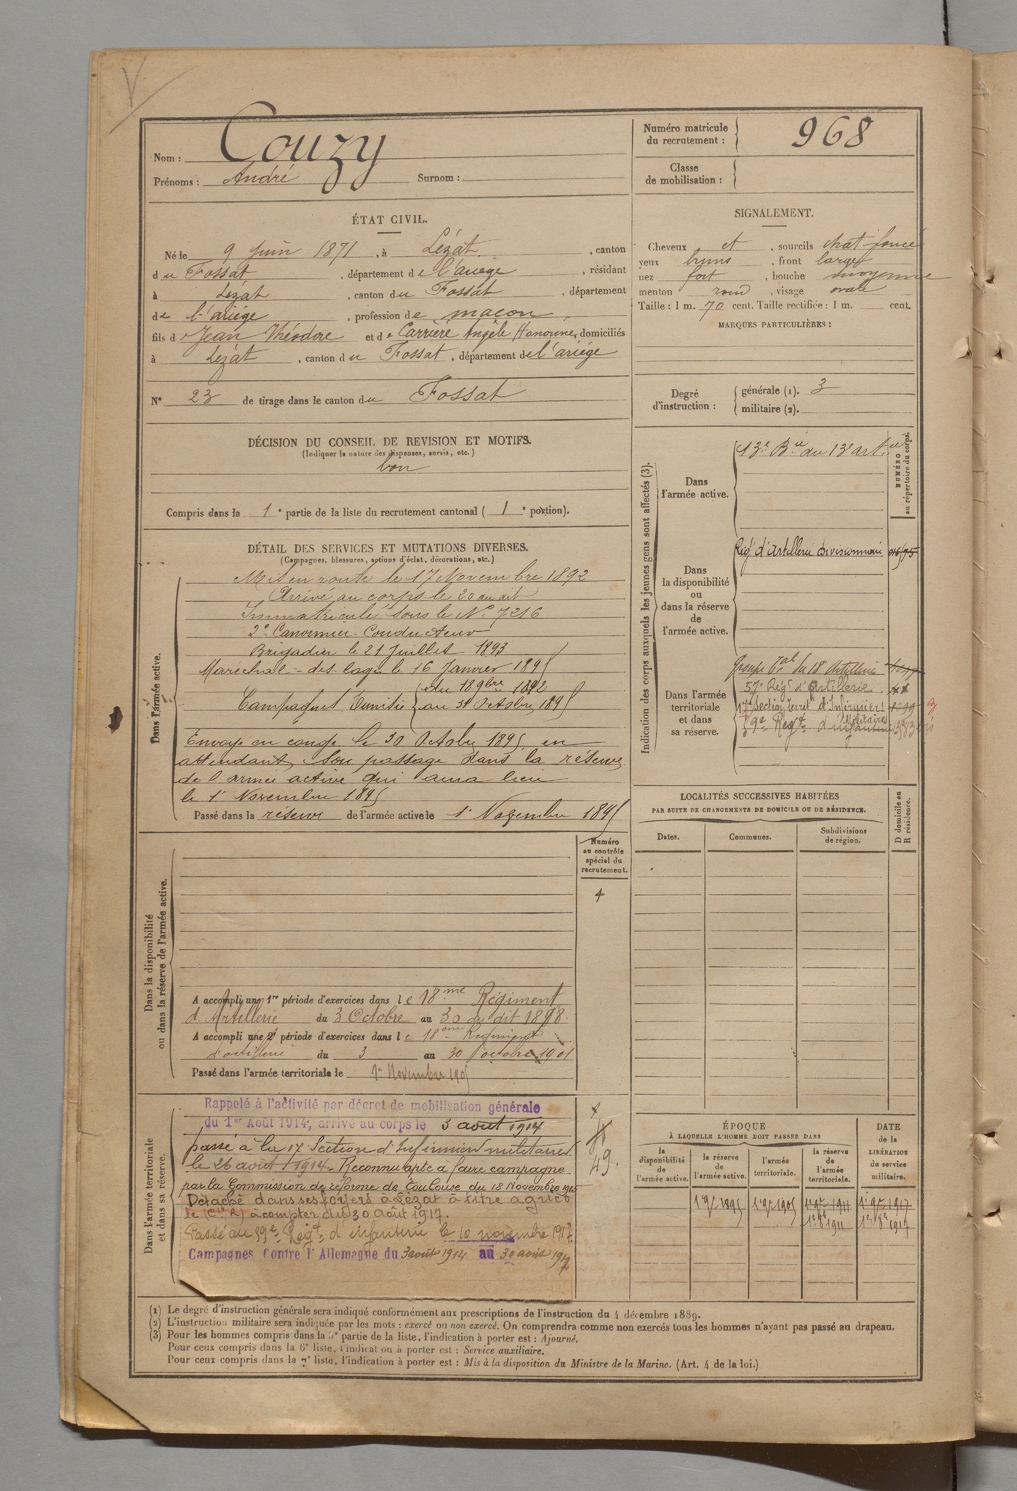 V
Nom : Couzy
Prénoms : André Surnom :
Numéro matricule du recrutement : 968
Classe de mobilisation :
ÉTAT CIVIL.
Né le 9 Juin 1871, à Lézat, canton
du Fossat, département de l'ariège, résidant
à Lézat, canton du Fossat, département
de l'ariège, profession de maçon
fils de Jean Théodore et de Carrière Angèle Honorine, domiciliés
à Lezat, canton du Fossat, département de l'ariége
N° 23 de tirage dans le canton du Fossat
SIGNALEMENT.
Cheveux et, sourcils chat foncé
yeux bruns, front large
nez fort, bouche moyenne
menton rond, visage ovale
Taille : 1 m. 70 cent. Taille rectifiée : 1 m. cent.
MARQUES PARTICULIÈRES :
Degré d'instruction : générale (1). 3
militaire (2).
DÉCISION DU CONSEIL DE REVISION ET MOTIFS.
(Indiquer la nature des dispenses, sursis, etc.)
bon
Compris dans la 1e partie de la liste du recrutement cantonal ( 1e portion).
DÉTAIL DES SERVICES ET MUTATIONS DIVERSES.
(Campagnes, blessures, actions d'éclat, décorations, etc.)
Dans l'armée active.
Mis en route le 17 Novembre 1892
Arrivé au corps le 20 au dit
Immatriculé sous le N° 7216
2e Canonnier-Conducteur
Brigadier le 21 Juillet 1893
Marechal-des logis le 16 Janvier 1895
Campagnes Tunisie du 18 9bre 1892
au 31 Octobre 1895
Envoyé en congé le 30 Octobre 1895, en
attendant son passage dans la réserve
de l'armée active qui aura lieu
le 1er Novembre 1895
Passé dans la réserve de l'armée active le 1er Novembre 1895
Indication des corps auxquels les jeunes gens sont affectés (3).
NUMÉRO au répertoire du corps.
Dans l'armée active.
13e Bie au 13e art
Dans la disponibilité ou dans la réserve de l'armée active.
Régt d'Artillerie divisionnaire
Dans l'armée territoriale et dans sa réserve.
Groupe tal du 18 Artillerie
57e Régt d'Artillerie
17e Section territ. d'Infirmiers militaires
Régt d'infanterie
LOCALITÉS SUCCESSIVES HABITÉES
PAR SUITE DE CHANGEMENTS DE DOMICILE OU DE RÉSIDENCE.
Dates. Communes. Subdivisions de région. D domicile ou R résidence.
Dans la disponibilité ou dans la réserve de l'armée active.
Numéro au contrôle spécial du recrutement.
4
A accompli une 1re période d'exercices dans le 18me Régiment
d'Artillerie du 3 Octobre au 30 du dit 1898.
A accompli une 2e période d'exercices dans le 18eme Régiment
d'artillerie du 3 au 30 octobre 1901
Passé dans l'armée territoriale le 1er Novembre 1905
Dans l'armée territoriale et dans sa réserve.
Rappelé à l'activité par décret de mobilisation générale
du 1er Août 1914, arrivé au corps le 3 aout 1914
passé à la 17 Section d'Infirmiers militaires
le 26 août 1914. Reconnu apte a faire campagne
par la Commission de réforme de Toulouse du 18 Novembre 1915
Détaché dans ses foyers à Lézat à titre agricole
(Cie R) à compter du 30 août 1917.
Passé au 59e Régt d'infanterie le 10 novembre 1917.
Campagnes Contre l'Allemagne du 3 août 1914 au 30 août 1917
49.
ÉPOQUE
À LAQUELLE L'HOMME DOIT PASSER DANS
la disponibilité de l'armée active. la réserve de l'armée active. l'armée territoriale. la réserve de l'armée territoriale.
DATE de la LIBÉRATION du service militaire.
1er 9bre 1895 1er 9bre 1905 1er 9bre 1911 1er 9bre 1917
(1) Le degré d'instruction générale sera indiqué conformément aux prescriptions de l'instruction du 4 décembre 1889.
(2) L'instruction militaire sera indiquée par les mots : exercé ou non exercé. On comprendra comme non exercés tous les hommes n'ayant pas passé au drapeau.
(3) Pour les hommes compris dans la 5e partie de la liste, l'indication à porter est : Ajourné.
Pour ceux compris dans la 6e liste, l'indication à porter est : Service auxiliaire.
Pour ceux compris dans la 7e liste, l'indication à porter est : Mis à la disposition du Ministre de la Marine. (Art. 4 de la loi.)